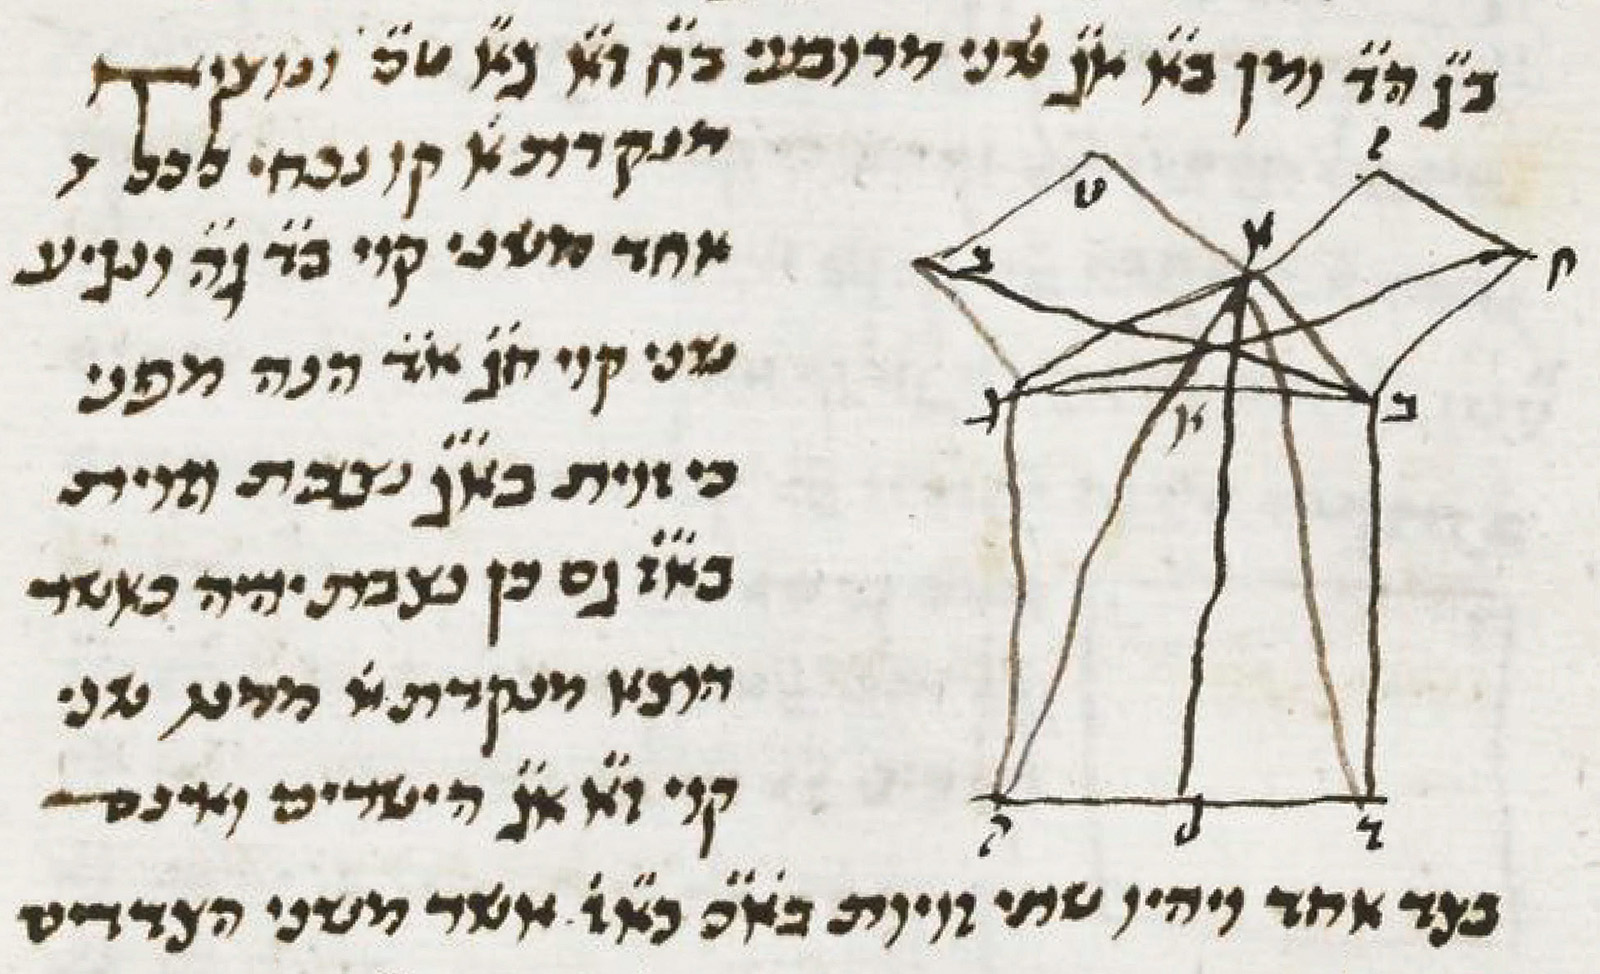 ב̈ג̈ ה̈ד̈ ומן ב̈א̈ א̈ג̈ שני מרובעי ב̈ח̈ ו̈א̈ ג̈א̈ ט̈כ̈ ונוציא
מנקדות א̇ קו נכחי לכל
אחד משני קוי ב̈ד̈ ג̈ה̈ ונגיע
שני קוי ח̈ג̈ א̈ד̈ הנה מפני
כי זוית ב̈א̈ג̈ נצבת וזוית
ב̈א̈ז̈ גם כן נצבת יהיה כאשר
הוצא מנקדת א̇ ממנו שני
קוי ז̈א̈ א̈ג̈ הישרים ואינם
בצד אחד ויהיו שתי זויות ב̈א̈ג̈ ב̈א̈ז̈ אשר משני הצדדים
ז
ט
א
ח
כ
ג
ב
ה
ל
ד